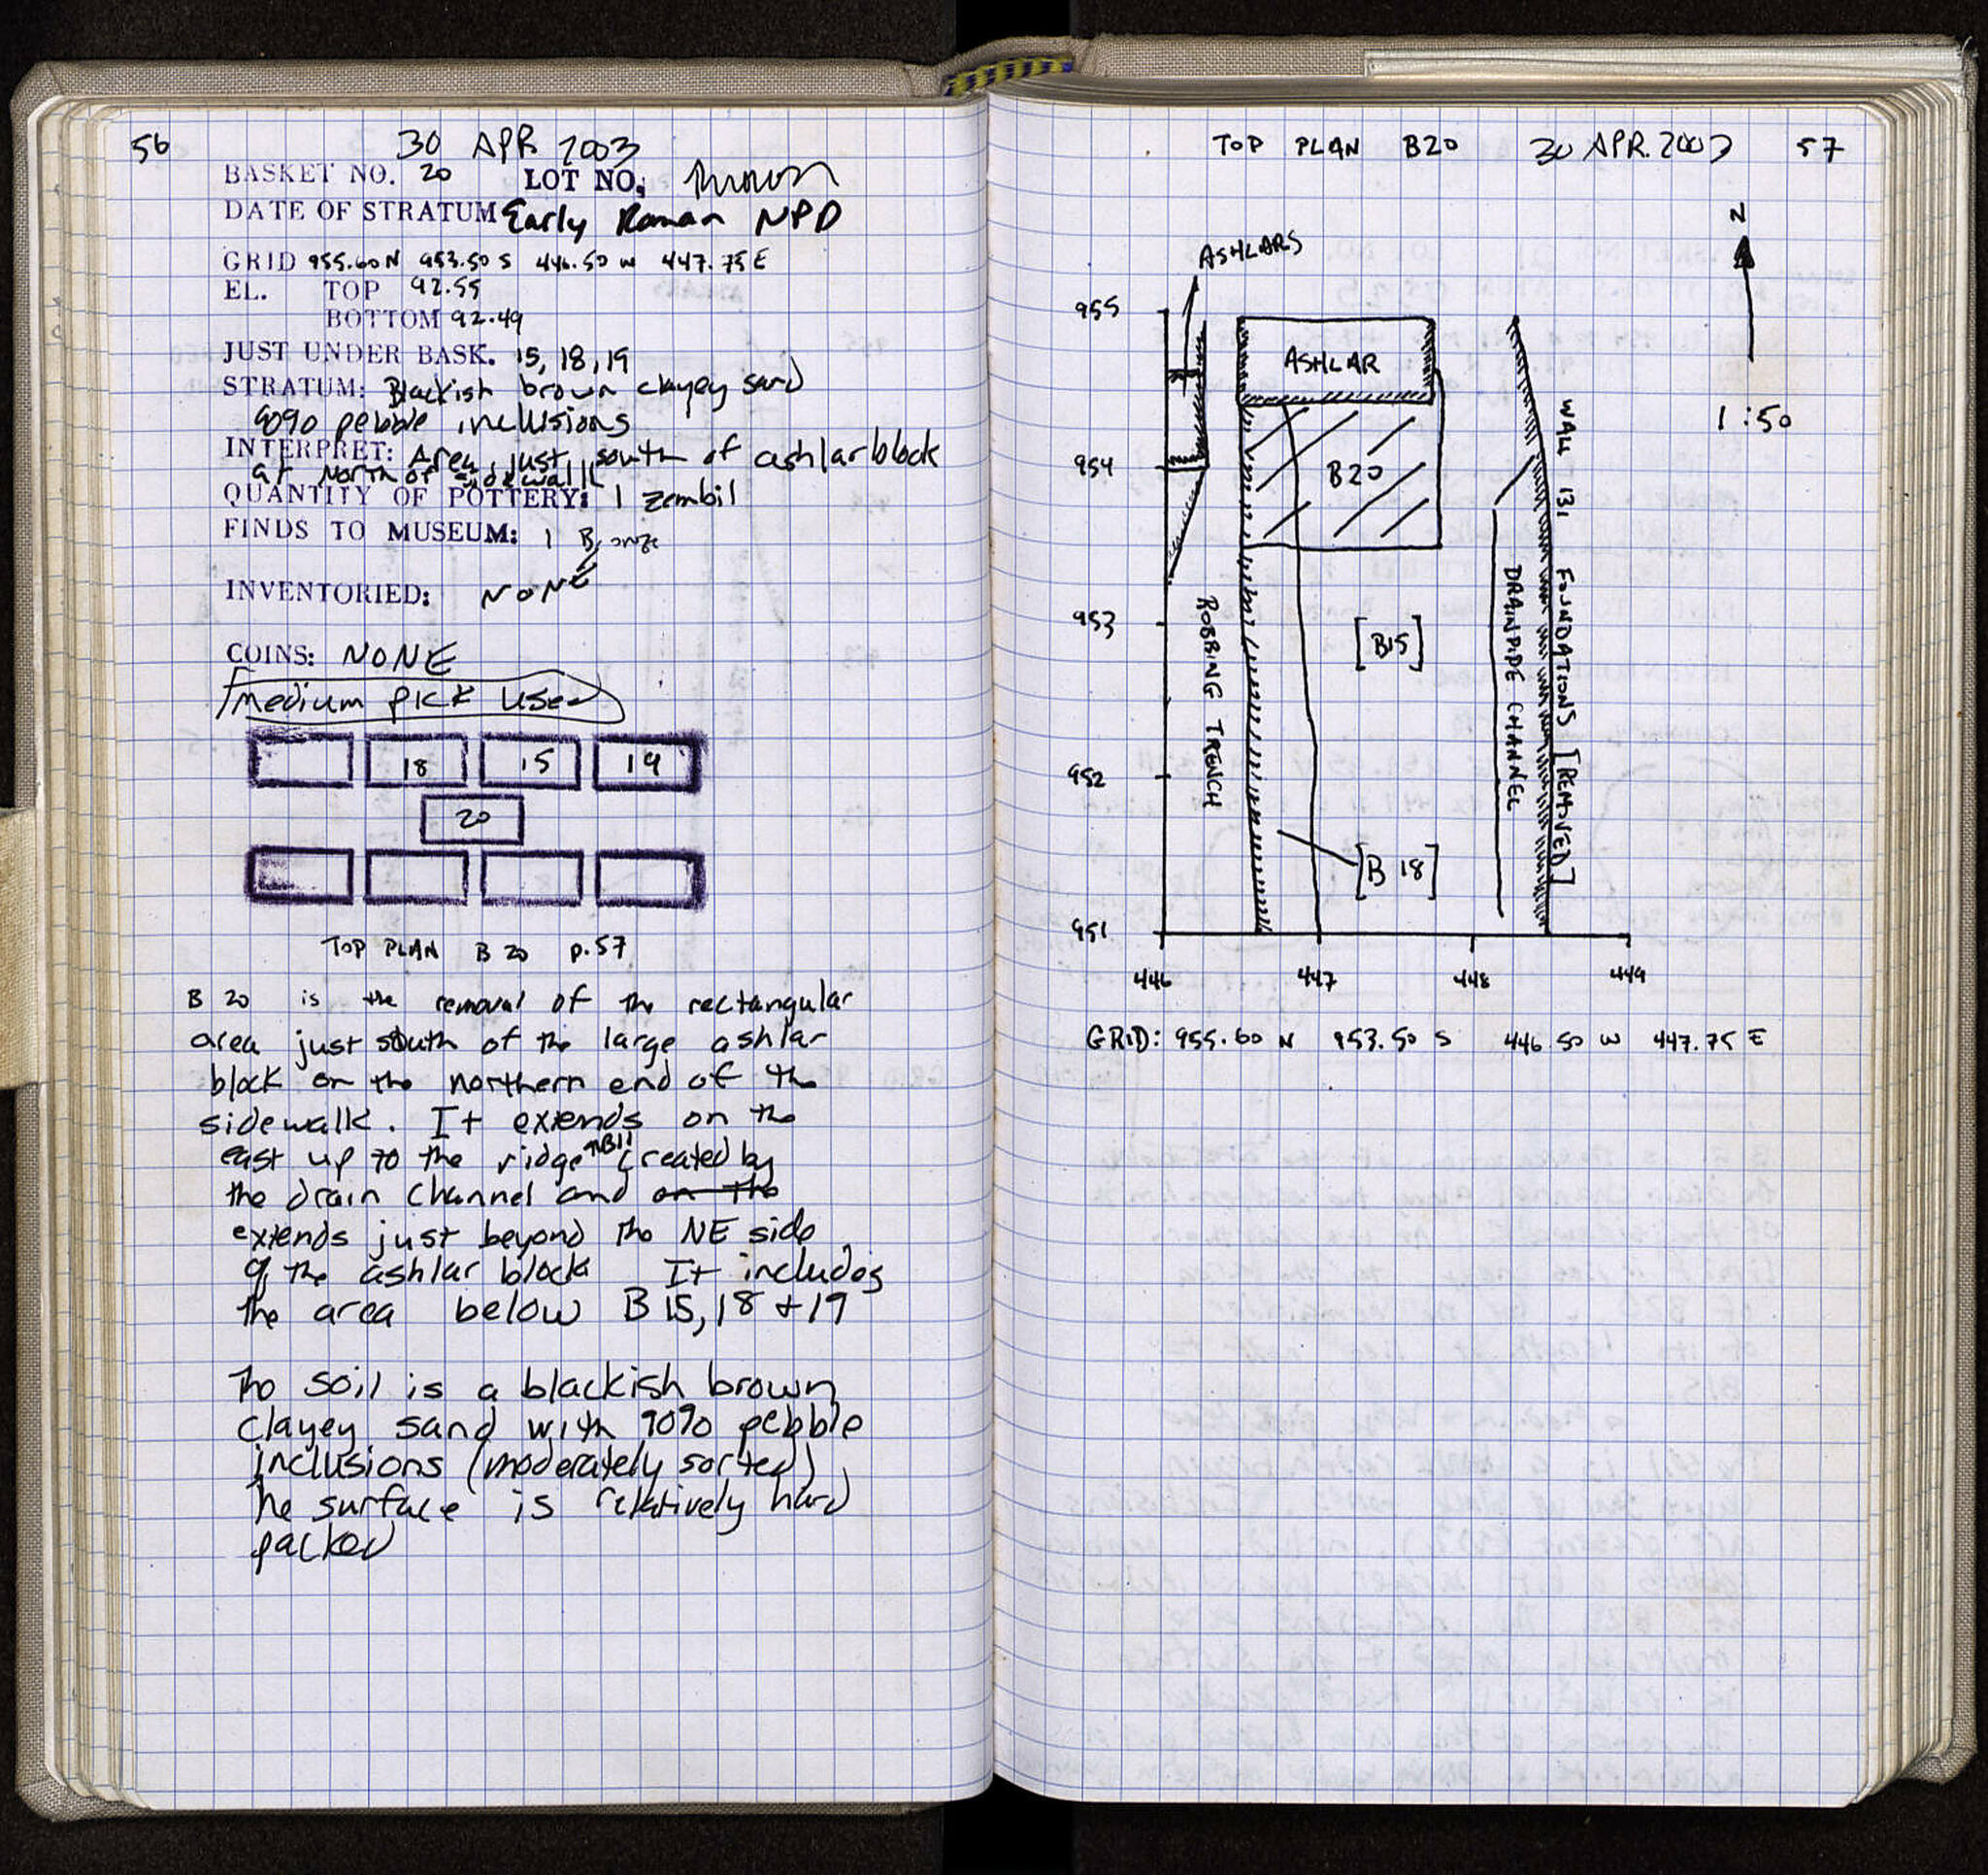 56
30 APR 2003
BASKET NO. 20 LOT NO.
DATE OF STRATUM Early Roman NPD
GRID 955.60 N 953.50 S 446.50 W 447.75 E
EL. TOP 92.55
BOTTOM 92.49
JUST UNDER BASK. 15, 18, 19
STRATUM: Blackish brown clayey sand
90% pebble inclusions
INTERPRET: Area just south of ashlar block
at North of sidewalk
QUANTITY OF POTTERY: 1 zembil
FINDS TO MUSEUM: 1 Bronze
INVENTORIED: NONE
COINS: NONE
medium pick used
18 15 19
20
TOP PLAN B 20 p. 57
B 20 is the removal of the rectangular
area just south of the large ashlar
block on the northern end of the
sidewalk. It extends on the
east up to the ridge created by
the drain channel and on the
extends just beyond the NE side
of the ashlar block It includes
the area below B 15, 18 + 19
The soil is a blackish brown
clayey sand with 90% pebble
inclusions (moderately sorted)
The surface is relatively hard
packed
TOP PLAN B20 30 APR. 2003 57
N
1:50
ASHLARS
955
ASHLAR
954
B20
953
[B15]
952
[B 18]
951
446 447 448 449
ROBBING TRENCH
DRAINPIPE CHANNEL
WALL 131 FOUNDATIONS [REMOVED]
GRID: 955.60 N 953.50 S 446.50 W 447.75 E